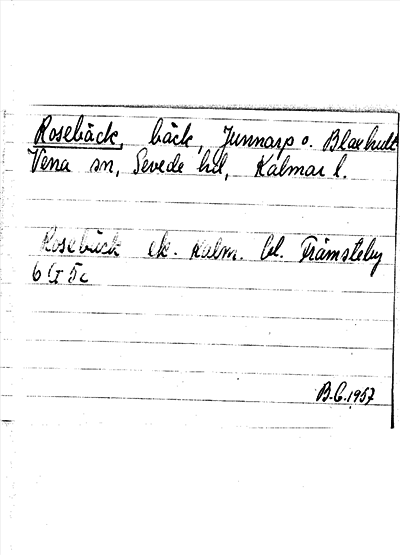 Rosebäck, bäck, Junnarp o. Blaxhult
Vena sn, Sevede hd, Kalmar l.
Rosebäck ek. Kalm. bl. Främsteby
6 G 5c
B.G. 1957